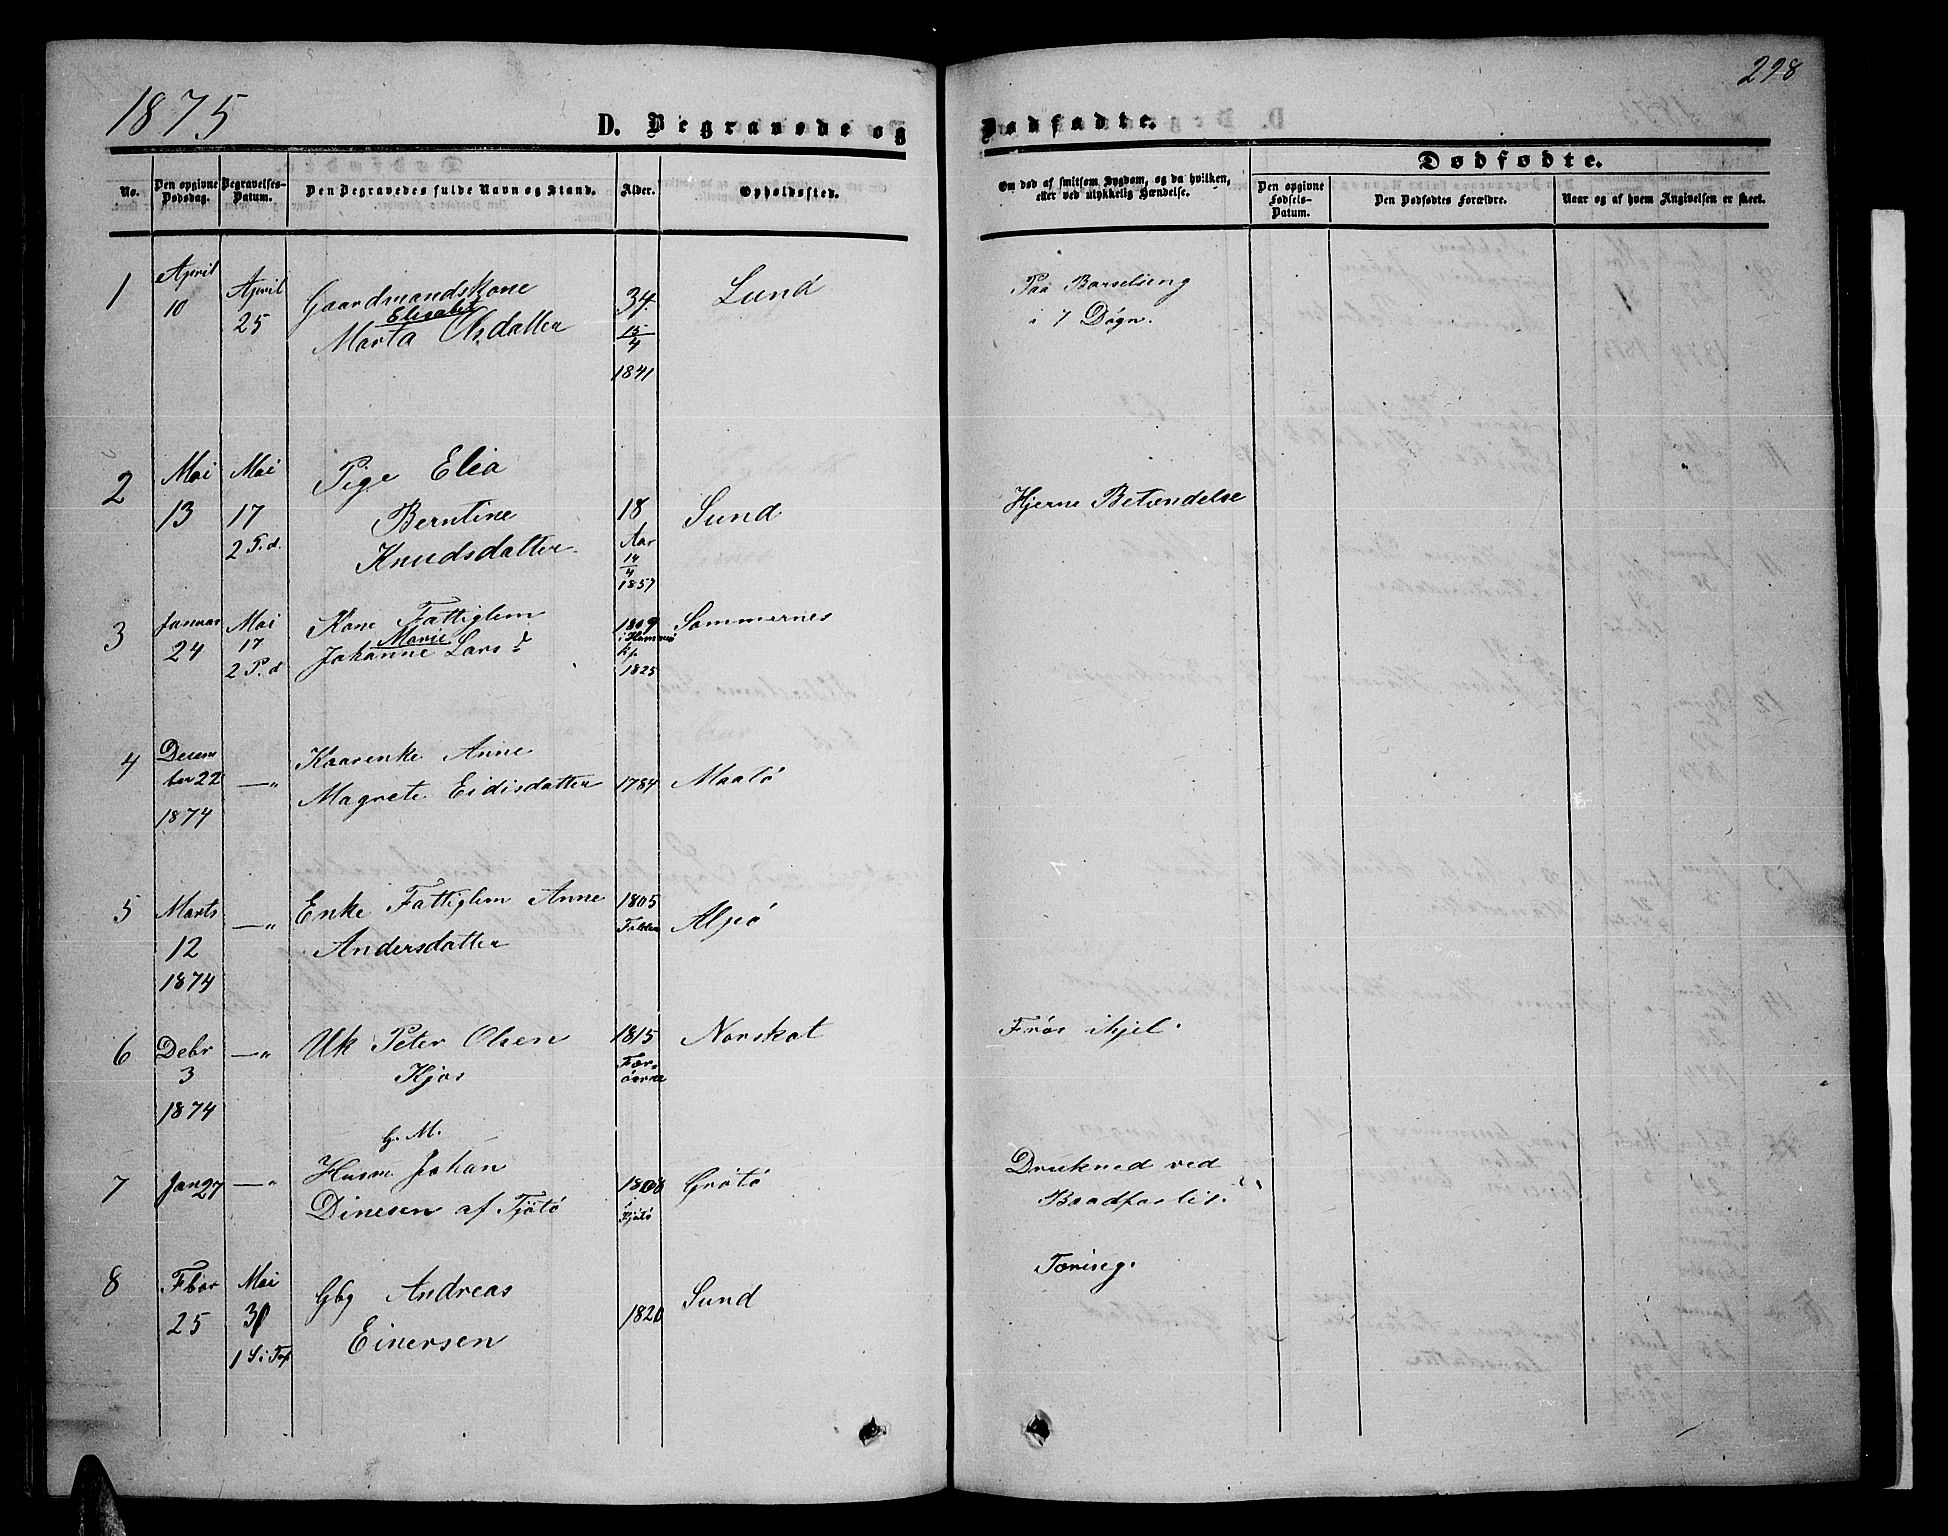 1875
298
D. Begravede og Dødfødte.
Dødfødte.
No.
Den opgivne Dødsdag.
Begravelses-Datum.
Den Begravedes fulde Navn og Stand.
Alder.
Opholdssted.
Om død af smitsom Sygdom, og da hvilken,
eller ved ulykkelig Hændelse.
Den opgivne Fødsels-Datum.
Den Dødfødtes Forældre.
Naar og af hvem Angivelsen er skeet.
1
April 10
April 25
Gaardmandskone
Elisabet
Marta Olsdatter
34
15/4
1841
Lund
Paa Barselseng
i 7 Døgn.
2
Mai 13
Mai 17
2 P.d.
Pige Elia
Berntine
Knudsdatter
18
Aar
14/4
1857
Sund
Hjerne Betændelse
3
Januar 24
Mai 17
2 P.d
Kone Fattiglem
Marie
Johanne Lars d
1809
i Hammerø
kp.
1825
Sommernes
4
Decem
ber 22
1874
—"
Kaarenke Anne
Magrete Eidisdatter
1784
Maalø
5
Marts
12
1874
—"
Enke Fattiglem Anne
Andersdatter
1805
Folden
Alpø
6
Debr
3
1874
—"
Uk Peter Olsen
Kjos
1815
Fær-
øerne
Norskot
Frøs ihjel.
7
Jan 27
—"
G. M.
Husm Johan
Dinesen af Tjøtø
1808
i
Tjøtø
Grøtø
Drukned ved
Baadforlis.
8
Fbar
25
Mai
30
1 S i Tref
Gbg Andreas
Einersen
1820
Sund
Tæring.